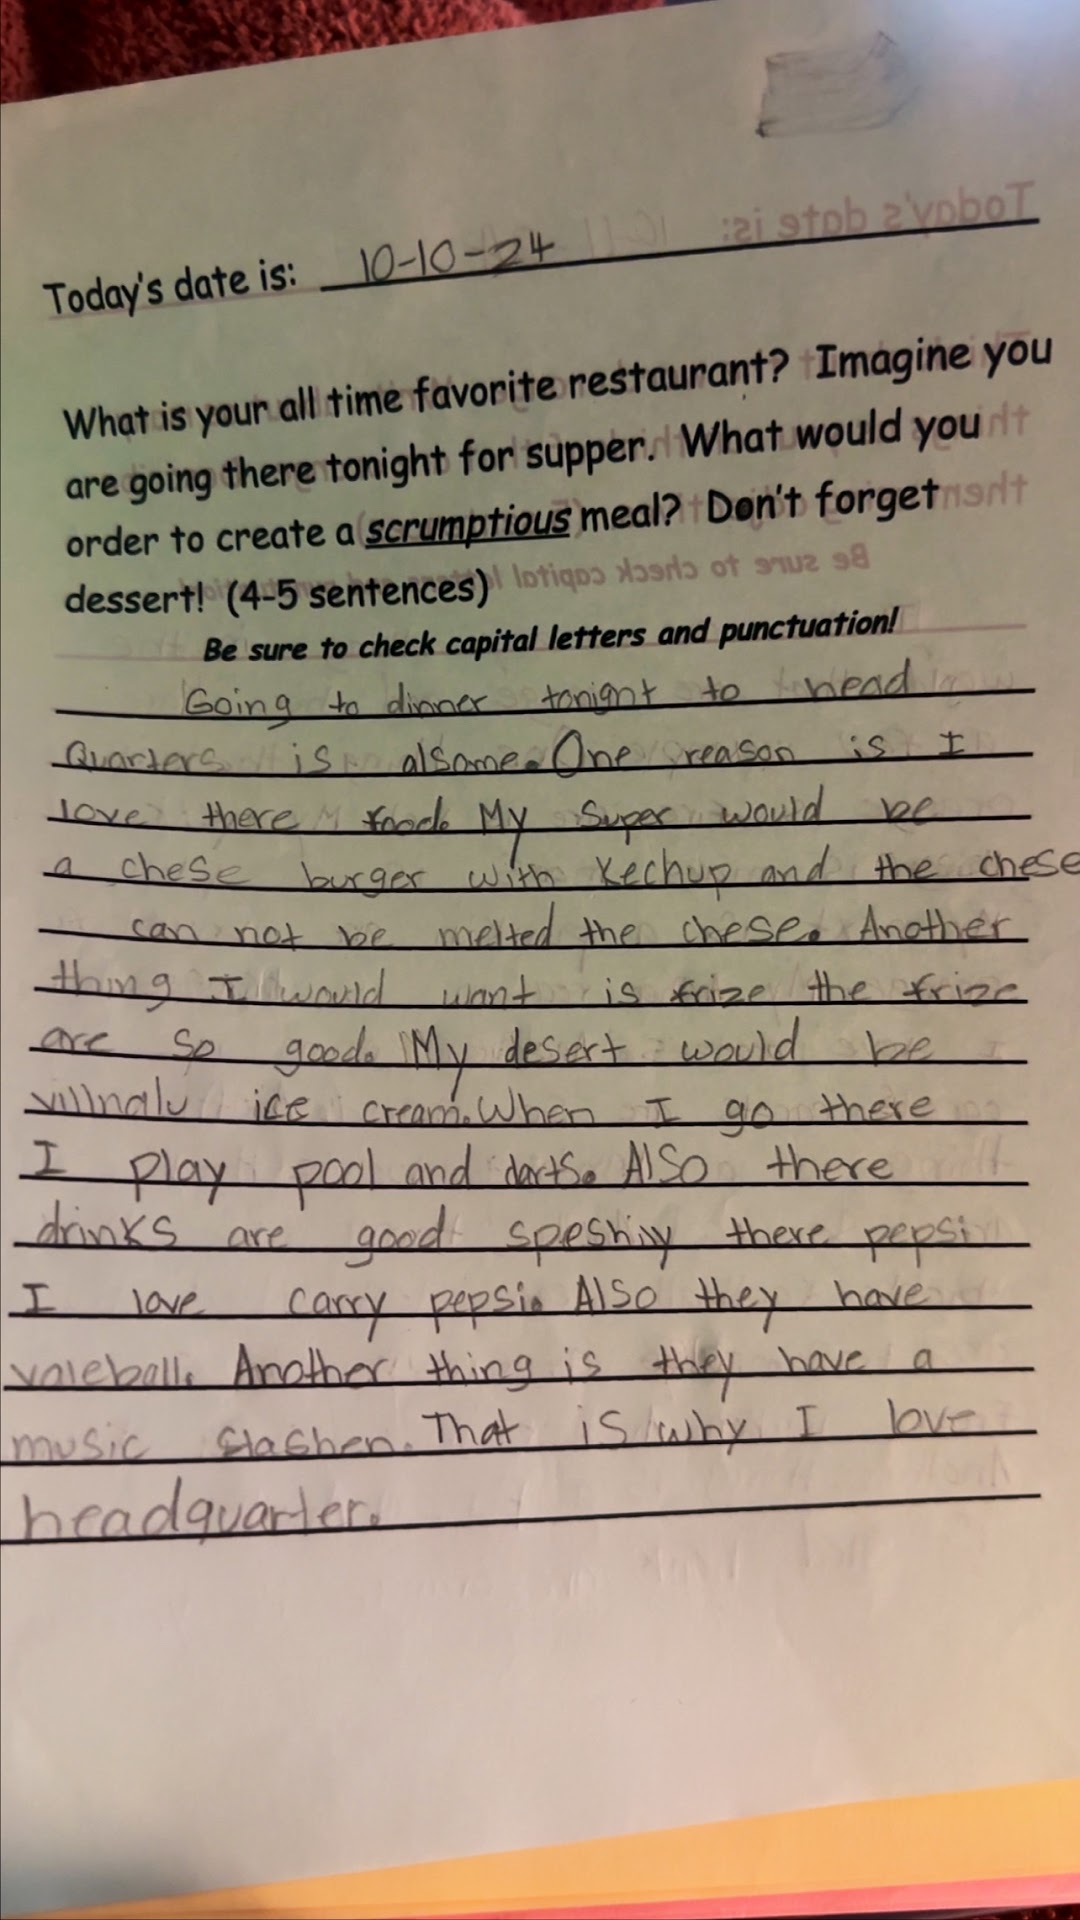 Today's date is: 10-10-24
What is your all time favorite restaurant? Imagine you
are going there tonight for supper. What would you
order to create a scrumptious meal? Don't forget
dessert! (4-5 sentences)
Be sure to check capital letters and punctuation!
Going to dinner tonight to head
Quarters is alsome. One reason is I
love there food. My Super would be
a chese burger with Kechup and the chese
can not be melted the chese. Another
thing I would want is frize the frize
are so good. My desert would be
villnalu ice cream. When I go there
I play pool and darts. Also there
drinks are good speshiy there pepsi
I love carry pepsi. Also they have
valeball. Another thing is they have a
music slashen. That is why I love
headquarter.